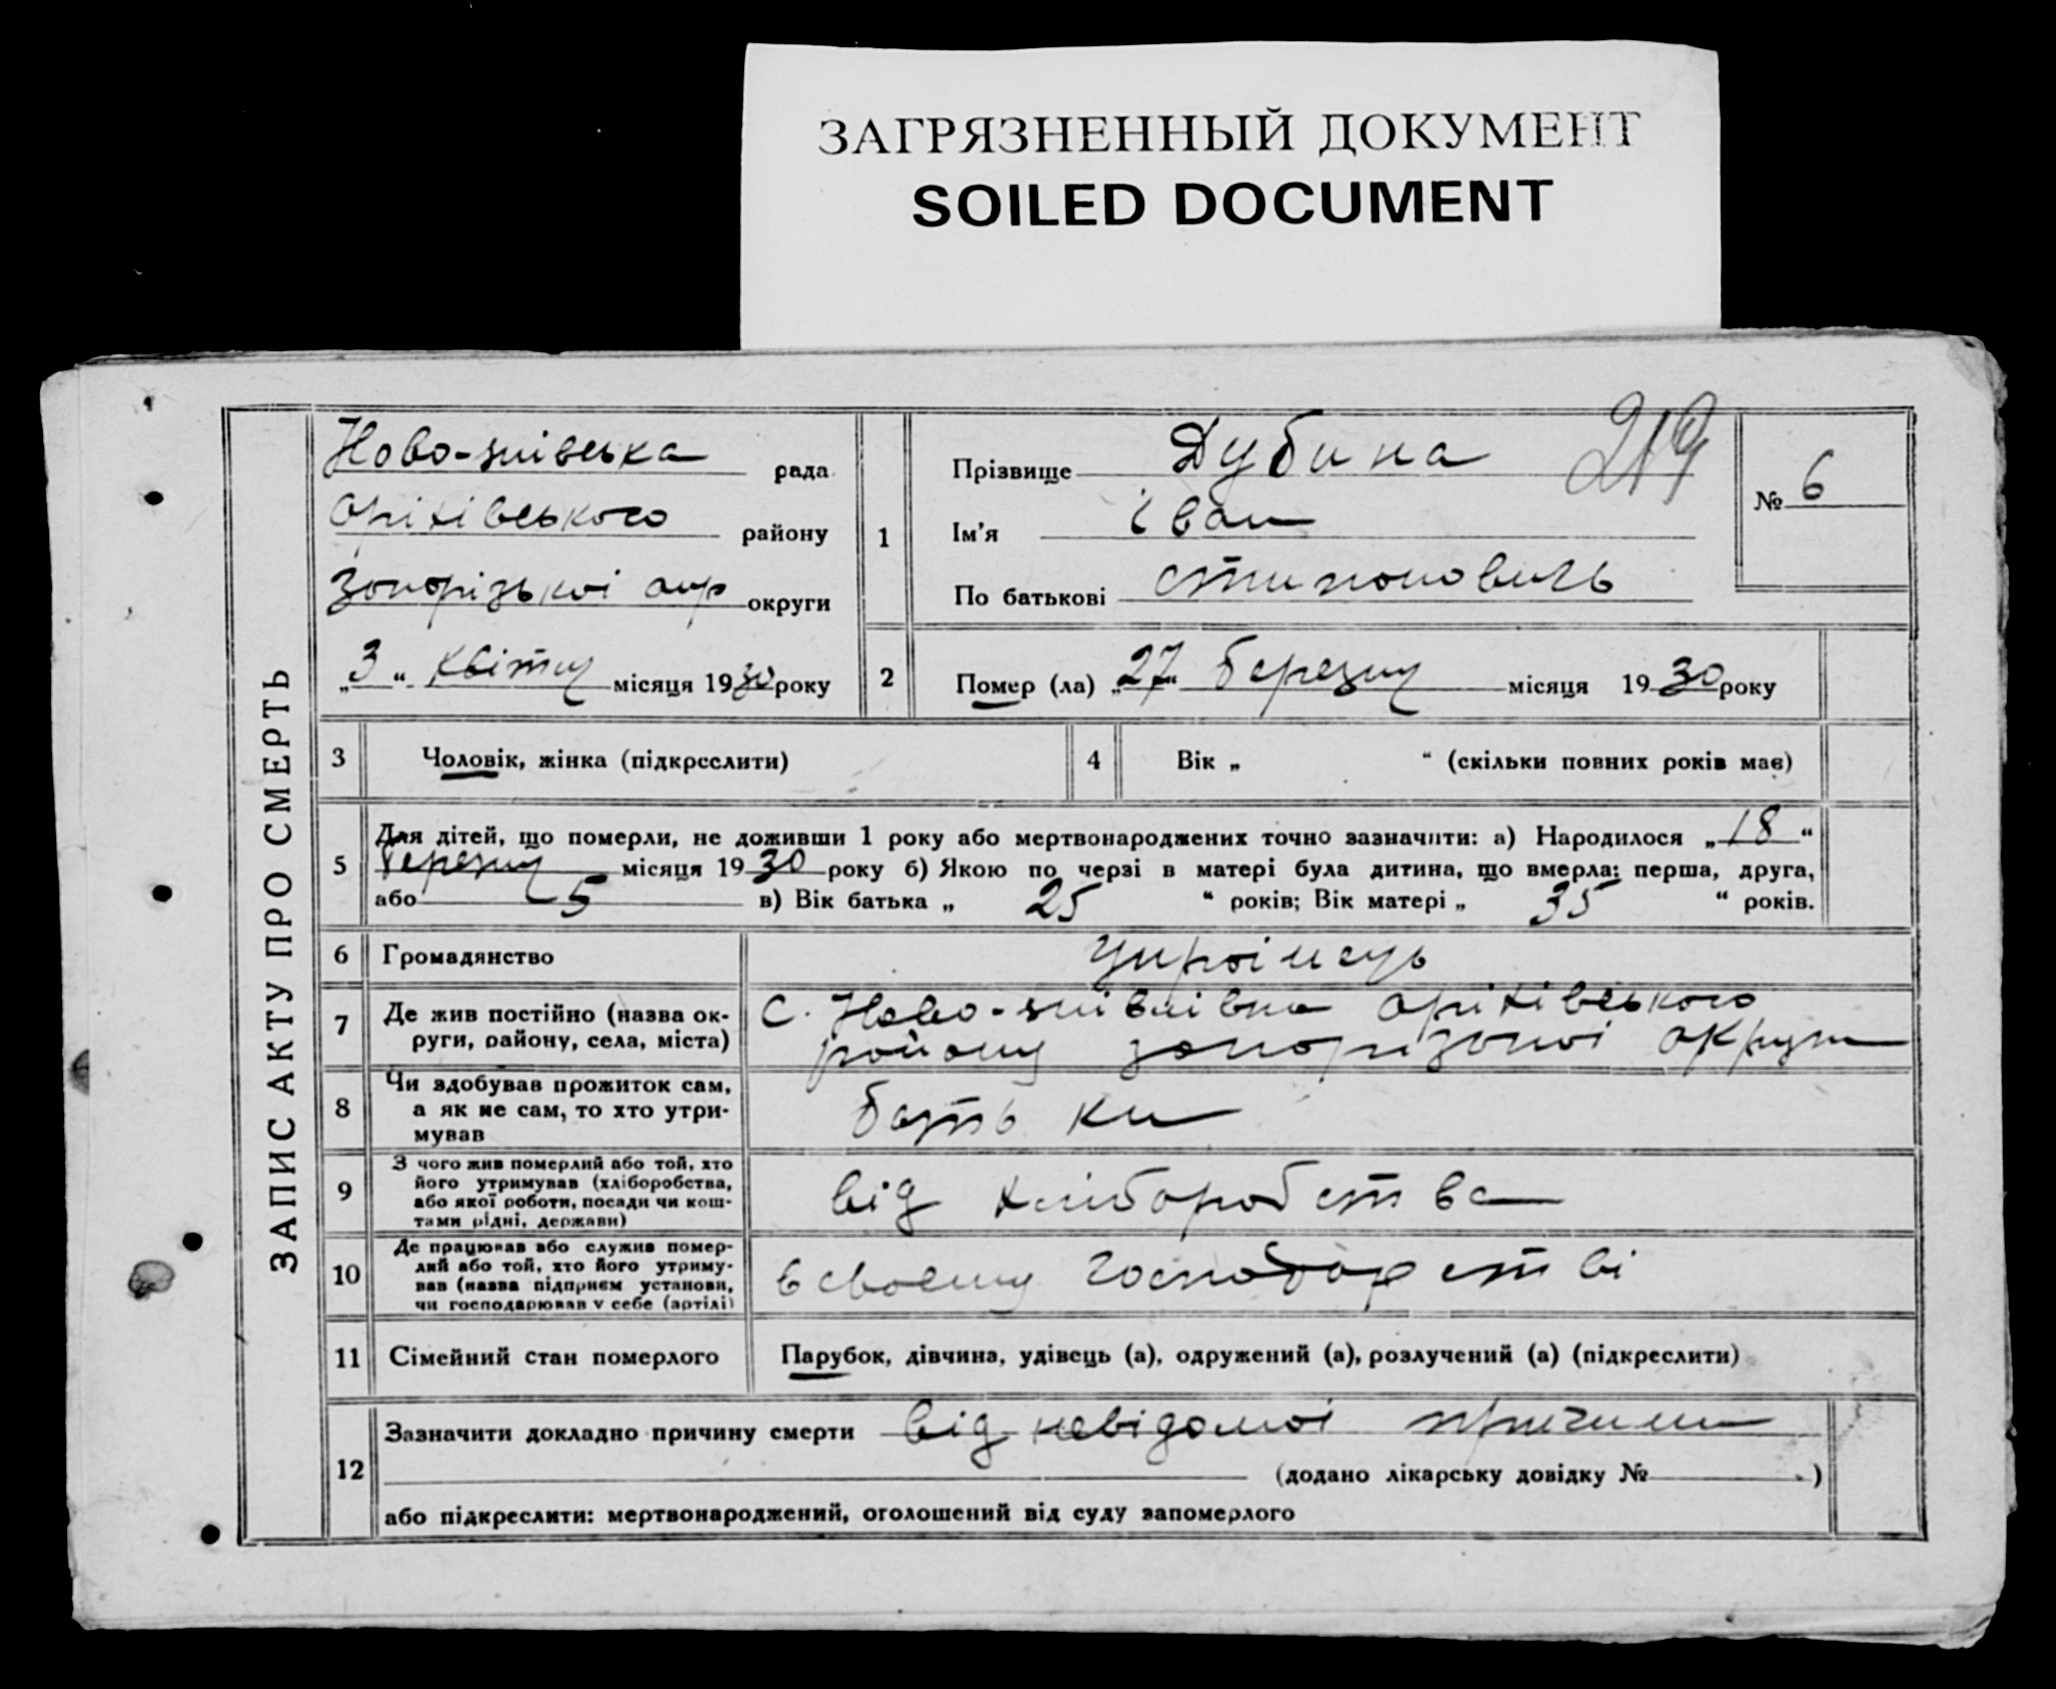 ЗАГРЯЗНЕННЫЙ ДОКУМЕНТ
SOILED DOCUMENT
ЗАПИС АКТУ ПРО СМЕРТЬ
Ново- рада
Оріхівського району
Запорізькоі окр округи
„3“ квітня місяця 1930 року
1
Прізвище Дубина 219
Ім'я Іван
По батькові
№ 6
2 Помер (ла) „27“ березня місяця 1930 року
3 Чоловік, жінка (підкреслити)
4 Вік „ “ (скільки повних років має)
5 Для дітей, що померли, не доживши 1 року або мертвонароджених точно зазначити: а) Народилося „18“
березня місяця 1930 року б) Якою по черзі в матері була дитина, що вмерла: перша, друга,
або 5 в) Вік батька „ 25 “ років; Вік матері „ 35 “ років.
6 Громадянство украінець
7 Де жив постійно (назва ок-
руги, району, села, міста)
С. Ново- Оріхівського
району запорізькоі округи
8 Чи здобував прожиток сам,
а як не сам, то хто утри-
мував
батьки
9 З чого жив померлий або той, хто
його утримував (хліборобства,
або якої роботи, посади чи кош-
тами рідні, держави)
від хліборобства
10 Де працював або служив помер-
лий або той, хто його утриму-
вав (назва підприєм установи,
чи господарював у себе (артілі)
в своєму господарстві
11 Сімейний стан померлого Парубок, дівчина, удівець (а), одружений (а), розлучений (а) (підкреслити)
12 Зазначити докладно причину смерти від невідомоі причини
(додано лікарську довідку № )
або підкреслити: мертвонароджений, оголошений від суду запомерлого